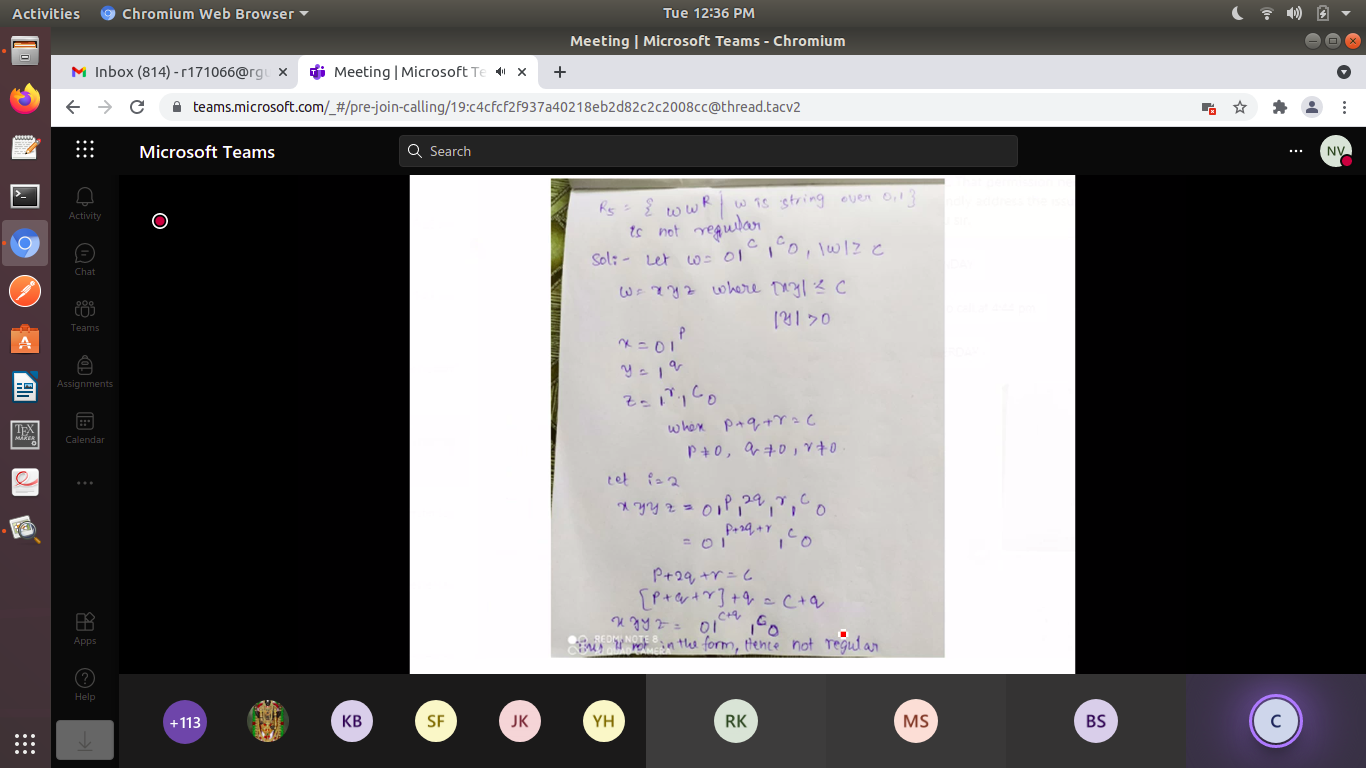 Activities
Chromium Web Browser
Tue 12:36 PM
Meeting | Microsoft Teams - Chromium
Inbox (814) - r171066@rgu
Meeting | Microsoft Te
teams.microsoft.com/_#/pre-join-calling/19:c4cfcf2f937a40218eb2d82c2c2008cc@thread.tacv2
Microsoft Teams
Search
NV
Activity
Chat
Teams
Assignments
Calendar
Apps
Help
R5 = { ww^R | w is string over 0,1}
is not regular
Sol:- Let w= 01^C 1^C 0, |w| ≥ C
w= xyz where |xy| ≤ C
|y| >0
x = 01^P
y = 1^q
z = 1^r 1^C 0
where p+q+r = C
P≠0, q≠0, r≠0.
Let i=2
xyyz = 01^P 1^2q 1^r 1^C 0
= 01^P+2q+r 1^C 0
P+2q+r = C
[P+q+r]+q = C+q
xyyz = 01^C+q 1^C 0
REDMI NOTE 8
QUAD CAMERA
This is not in the form, Hence not regular
+113
KB
SF
JK
YH
RK
MS
BS
C